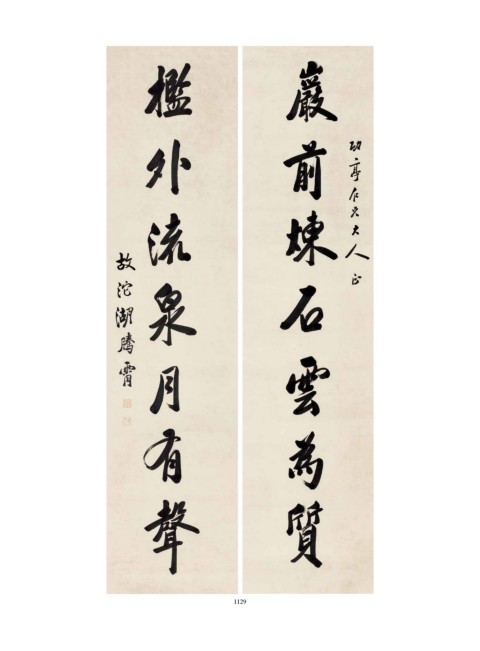 巖前煉石雲為質
功亭仁兄大人正
檻外流泉月有聲
故沱湖騰霄
1129